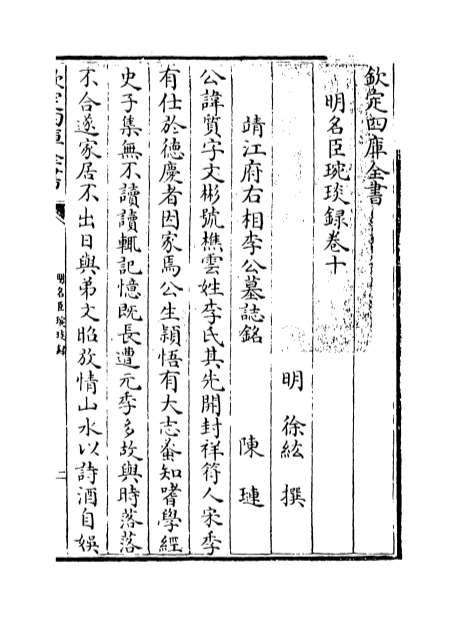 欽定四庫全書
明名臣琬琰録卷十
明 徐紘 撰
靖江府右相李公墓誌銘 陳璉
公諱質字文彬號樵雲姓李氏其先開封祥符人宋季
有仕於德慶者因家焉公生穎悟有大志蚤知嗜學經
史子集無不讀讀輒記憶既長遭元季多故與時落落
不合遂家居不出日與弟文昭放情山水以詩酒自娛
明名臣琬琰録